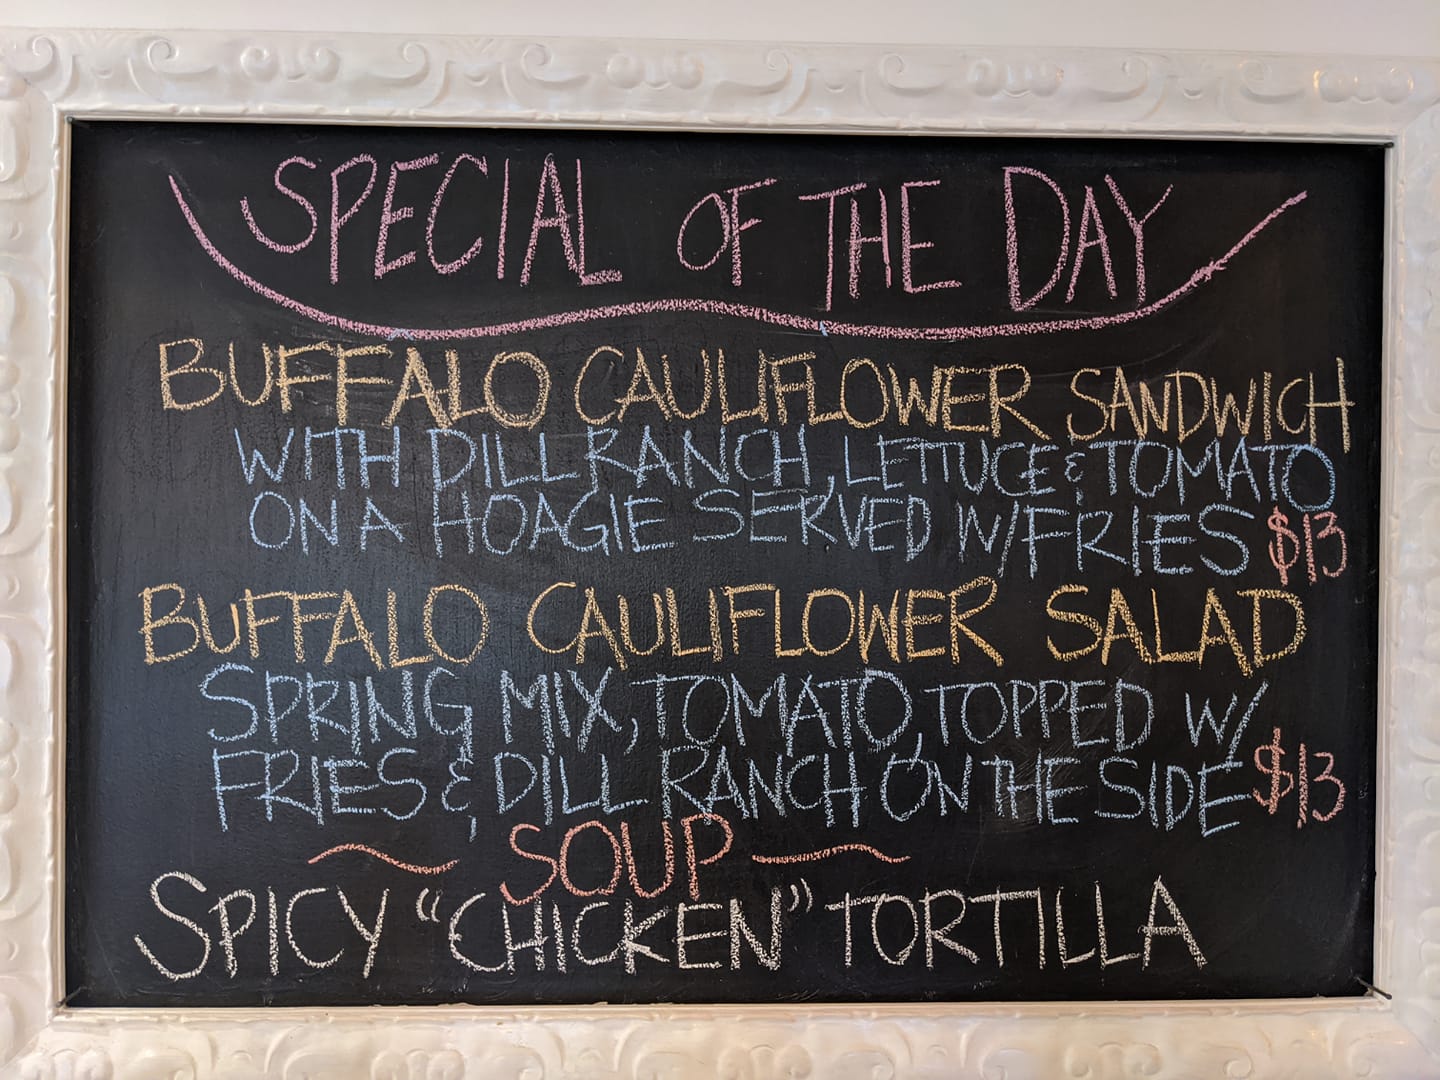 SPECIAL OF THE DAY
BUFFALO CAULIFLOWER SANDWICH
WITH DILL RANCH, LETTUCE & TOMATO
ON A HOAGIE SERVED W/FRIES $13
BUFFALO CAULIFLOWER SALAD
SPRING MIX, TOMATO, TOPPED W/
FRIES & DILL RANCH ON THE SIDE $13
~ SOUP ~
SPICY "CHICKEN" TORTILLA